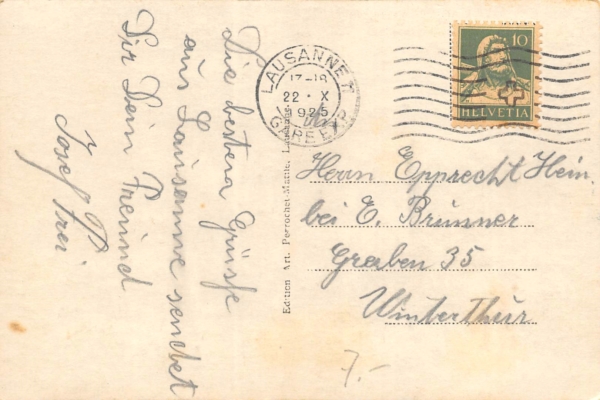 Die besten Grüsse
aus Lausanne sendet
Dir Dein Freund
Josef Frei
Edition Art. Perrochet-Matile, Lausanne
LAUSANNE 1
17-18
22 · X
1925
GARE EXP
10
HELVETIA
Herrn Epprecht Hein.
bei E. Brunner
Graben 35
Winterthur
7.-